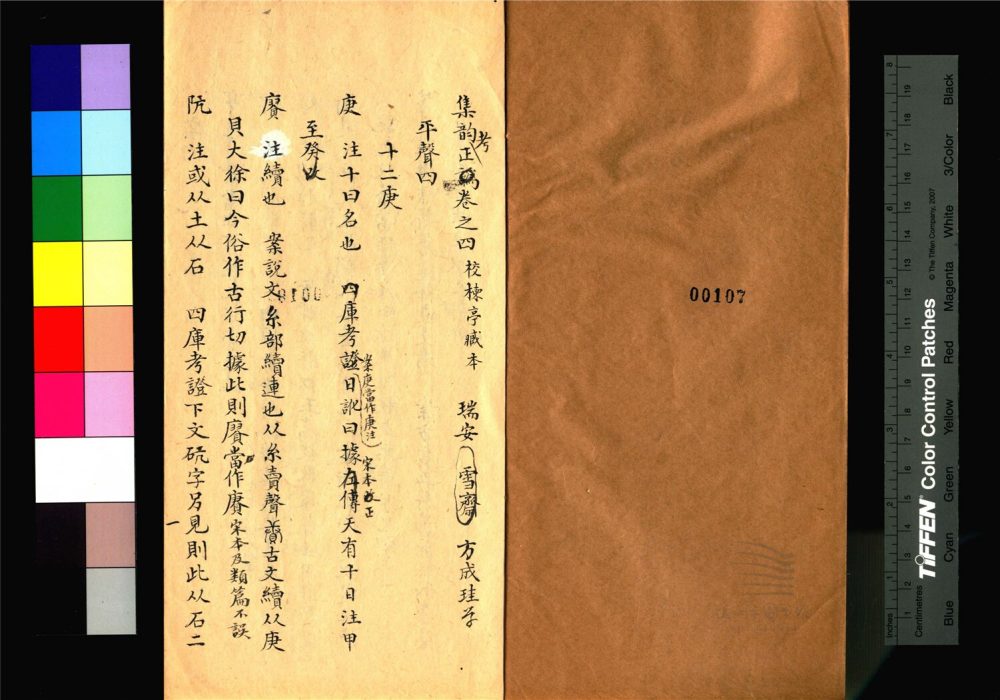 集韵考正卷之四 校楝亭臧本 瑞安 雪齋 方成珪學
平聲四
十二庚
庚 注十曰名也 四庫考證日訛曰據左傳天有十日注甲
案庚當作庚注 宋本改正
至癸改
賡 注續也 案說文糸部續連也从糸賣聲賡古文續从庚
貝大徐曰今俗作古行切據此則賡當作賡宋本及類篇不誤
阬 注或从土从石 四庫考證下文硄字另見則此从石二
一
0100
00107
Inches
Centimetres
TIFFEN® Color Control Patches
© The Tiffen Company, 2007
Blue Cyan Green Yellow Red Magenta White 3/Color Black